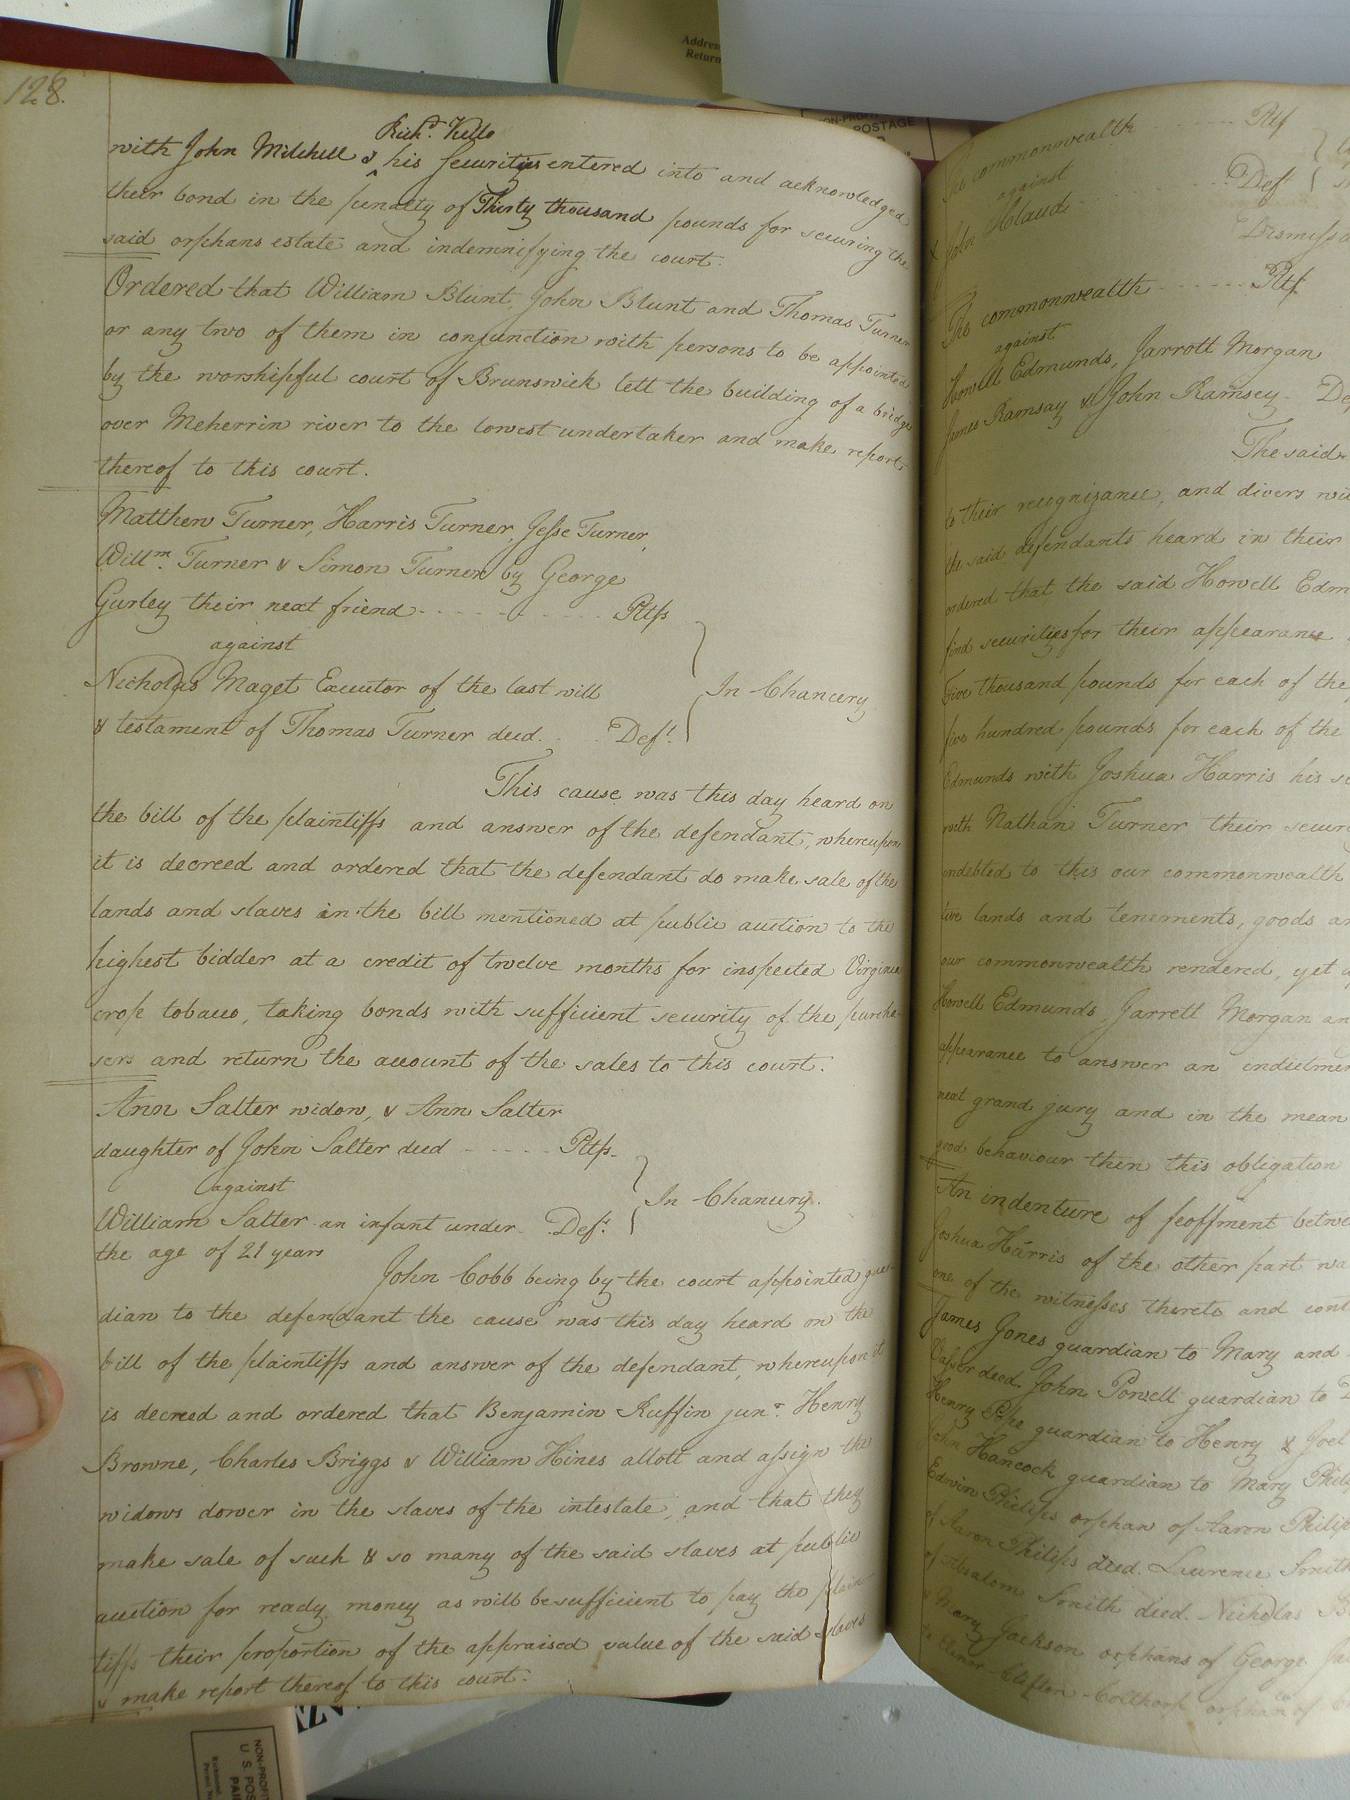 128.
Rich.d Kello
with John Mitchell & his securities entered into and acknowledged
their bond in the penalty of Thirty thousand pounds for securing the
said orphans estate and indemnifying the court.
Ordered that William Blunt, John Blunt and Thomas Turner
or any two of them in conjunction with persons to be appointed
by the worshipful court of Brunswick lett the building of a bridge
over Meherrin river to the lowest undertaker and make report
thereof to this court.
Matthew Turner, Harris Turner, Jesse Turner,
Will.m Turner & Simon Turner by George
Gurley their next friend - - - - - - - - - - Pltfs
against
Nicholas Maget Executor of the last will
& testament of Thomas Turner decd. . . Def.t
In Chancery
This cause was this day heard on
the bill of the plaintiffs and answer of the defendant, whereupon
it is decreed and ordered that the defendant do make sale of the
lands and slaves in the bill mentioned at public auction to the
highest bidder at a credit of twelve months for inspected Virginia
crop tobacco, taking bonds with sufficient security of the purcha-
sers and return the account of the sales to this court.
Ann Salter widow, & Ann Salter
daughter of John Salter decd - - - - - Pltfs.
against
William Salter an infant under Def.t
the age of 21 years
In Chancery.
John Cobb being by the court appointed guar-
dian to the defendant the cause was this day heard on the
bill of the plaintiffs and answer of the defendant, whereupon it
is decreed and ordered that Benjamin Ruffin jun.r Henry
Browne, Charles Briggs & William Hines allott and assign the
widows dower in the slaves of the intestate, and that they
make sale of such & so many of the said slaves at public
auction for ready money as will be sufficient to pay the plain-
tiffs their proportion of the appraised value of the said slaves
& make report thereof to this court.
The commonwealth - - - - - Pltf
against
John Claud - - - - - - Def.t
Dismissd
The commonwealth - - - - - - - Pltf.
against
Howell Edmunds, Jarrott Morgan
James Ramsay & John Ramsey.
The said
to their recognizance, and divers
the said defendants heard in their
ordered that the said Howell
find securities for their appearance
Five thousand pounds for each of the
five hundred pounds for each of the
Edmunds with Joshua Harris his
with Nathan Turner their
indebted to this our commonwealth
lands and tenements, goods
our commonwealth rendered, yet
Howell Edmunds, Jarrett Morgan
appearance to answer an
next grand jury and in the mean
good behaviour then this obligation
An indenture of feoffment
Joshua Harris of the other part
one of the witnesses thereto and
James Jones guardian to Mary and
decd. John Powell guardian to
Henry Pope guardian to Henry & Joel
John Hancock guardian to Mary
Edwin Philips orphan of Aaron
of Aaron Philips decd. Lawrence Smith
of Absalom Smith decd. Nicholas
& Mary Jackson orphans of George
Address
Return
NON-PROFIT
POSTAGE
NON-PROFIT
U.S. POS
PAI